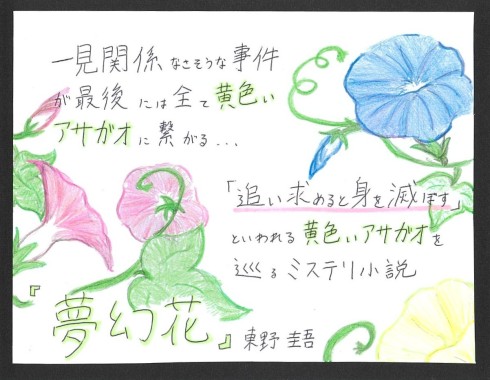 一見関係なさそうな事件
が最後には全て黄色い
アサガオに繋がる...
「追い求めると身を滅ぼす」
といわれる黄色いアサガオを
巡るミステリ小説
『夢幻花』東野圭吾